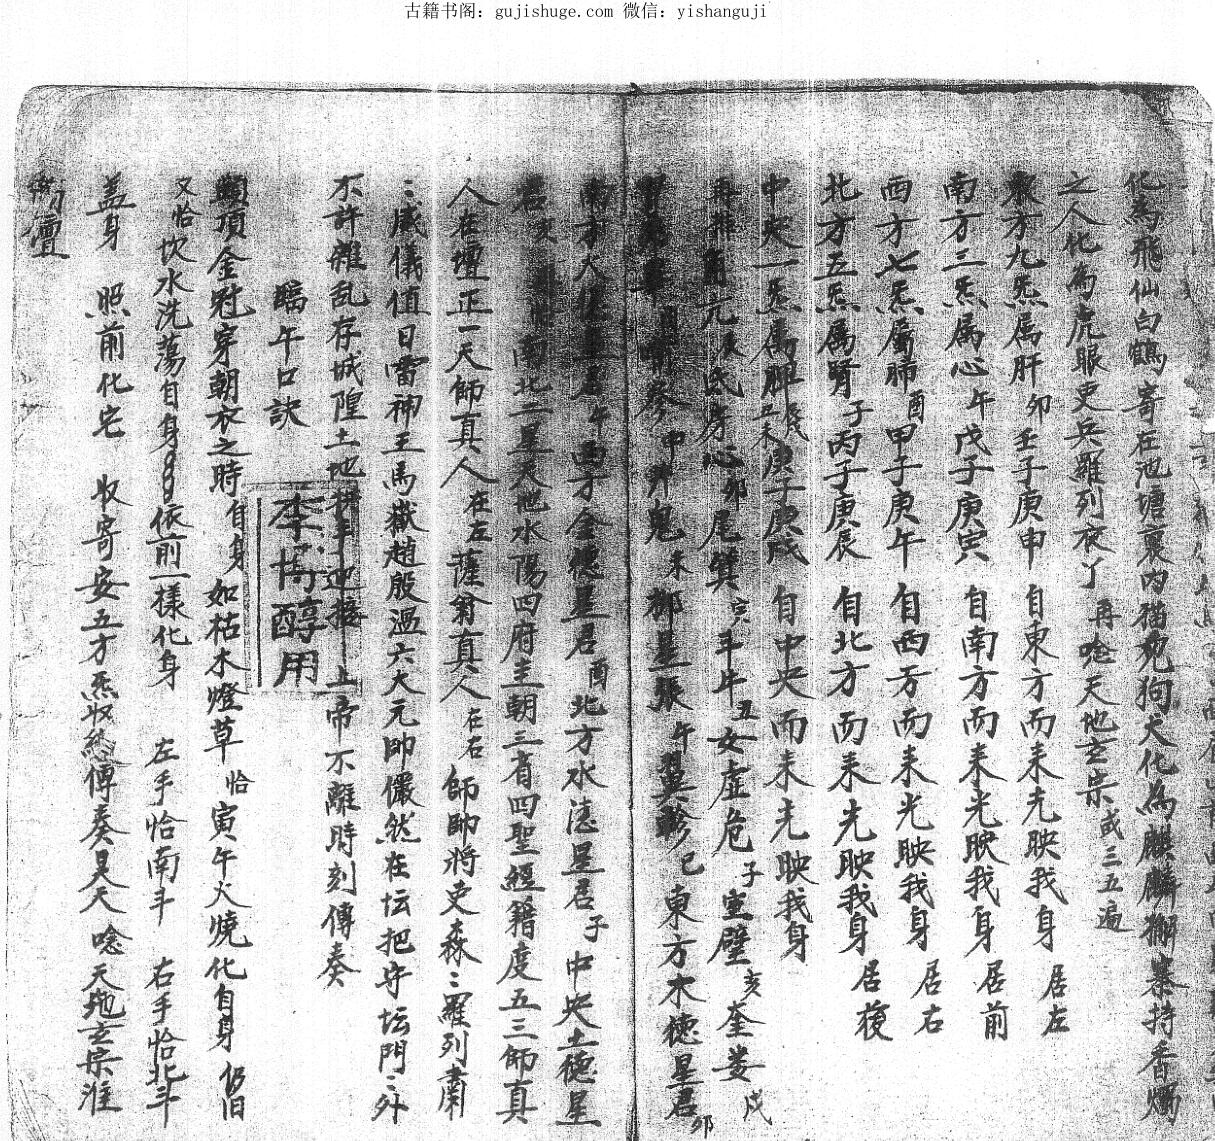 古籍书阁：gujishuge.com 微信：yishanguji
化為飛仙白鶴寄在池塘裏內猫兒狗犬化為麒麟獬豸持香燭
之人化為虎眼吏兵羅列衣丫再唸天地玄宗或三五遍
東方九炁属肝卯壬子庚申自東方而来光映我身居左
南方三炁属心午戊子庚寅自南方而来光映我身居前
西方七炁屬肺酉甲子庚午自西方而来光映我身居右
北方五炁属腎子丙子庚辰自北方而来光映我身居後
中央一炁属脾丑未辰戌庚子庚戌自中央而来光映我身
再 角亢辰氐房心卯尾箕寅斗牛丑女虚危子室壁亥奎婁戌
胃昴畢 觜參申井鬼未都星張午翼軫巳東方木德星君卯
南方火德星君午西方金德星君酉北方水德星君子中央土德星
君 南北二星天地水陽四府主朝三省四聖經籍度五三師真
人在壇正一天師真人在左薩翁真人在右師帥將吏森〻羅列肅
〻威儀值日雷神王馬嶽趙殷溫六大元帥儼然在坛把守坛門〻外
不許雜乱存城隍土地 迎接上帝不離時刻傳奏
臨午口訣
李 醇用
頭頂金冠穿朝衣之時自身如枯木燈草恰寅午火燒化自身仍旧
又恰坎水洗蕩自身依前一樣化身 左手恰南斗 右手恰北斗
盖身 照前化宅 收寄安五方炁收 傳奏昊天 唸天地玄宗准
壇